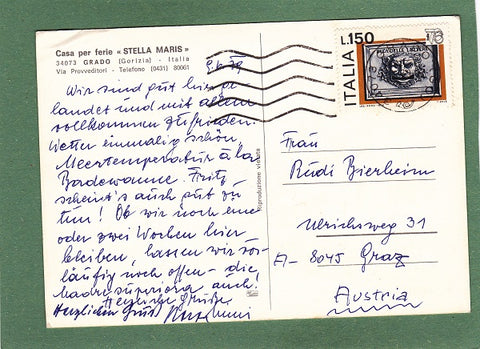 Casa per ferie « STELLA MARIS »
34073 GRADO (Gorizia) - Italia
Via Provveditori - Telefono (0431) 80061
Wir sind gut hier ge
landet und mit allem
vollkommen zufrieden.
Wetter einmalig schön,
Meertemperatur à la
Badewanne. Fritz
scheint's auch gut zu
tun! Ob wir noch eine
oder zwei Wochen hier
bleiben, lassen wir vor-
läufig noch offen - die
madre superiora auch!
Herzliche Grüße
Herzlichen Gruß
Riproduzione vietata
L.150
ITALIA
Frau
Rudi Bierheim
Ulrichsweg 31
A- 8045 Graz
Austria